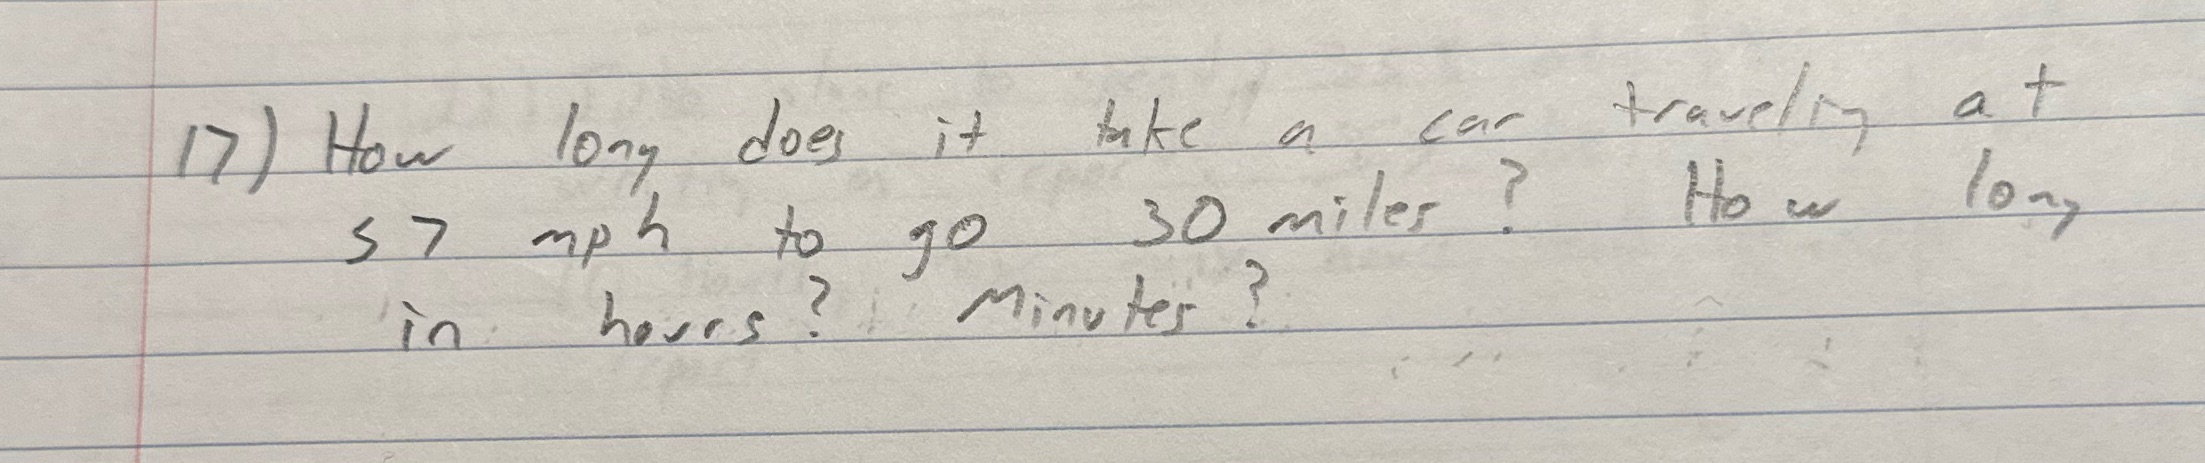 17) How long does it take a car traveling at
57 mph to go 30 miles? How long
in hours? Minutes?